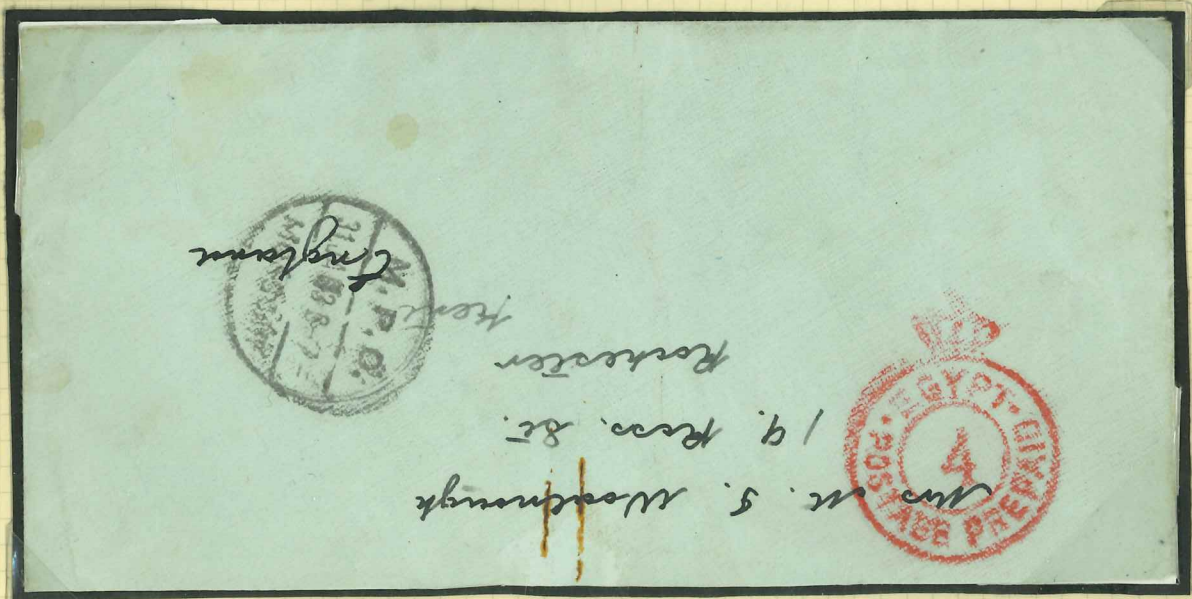 Mrs M. S. Woolnough
19. Ross. St.
Rochester
Kent
England
EGYPT
POSTAGE PREPAID
4
M.P.O.